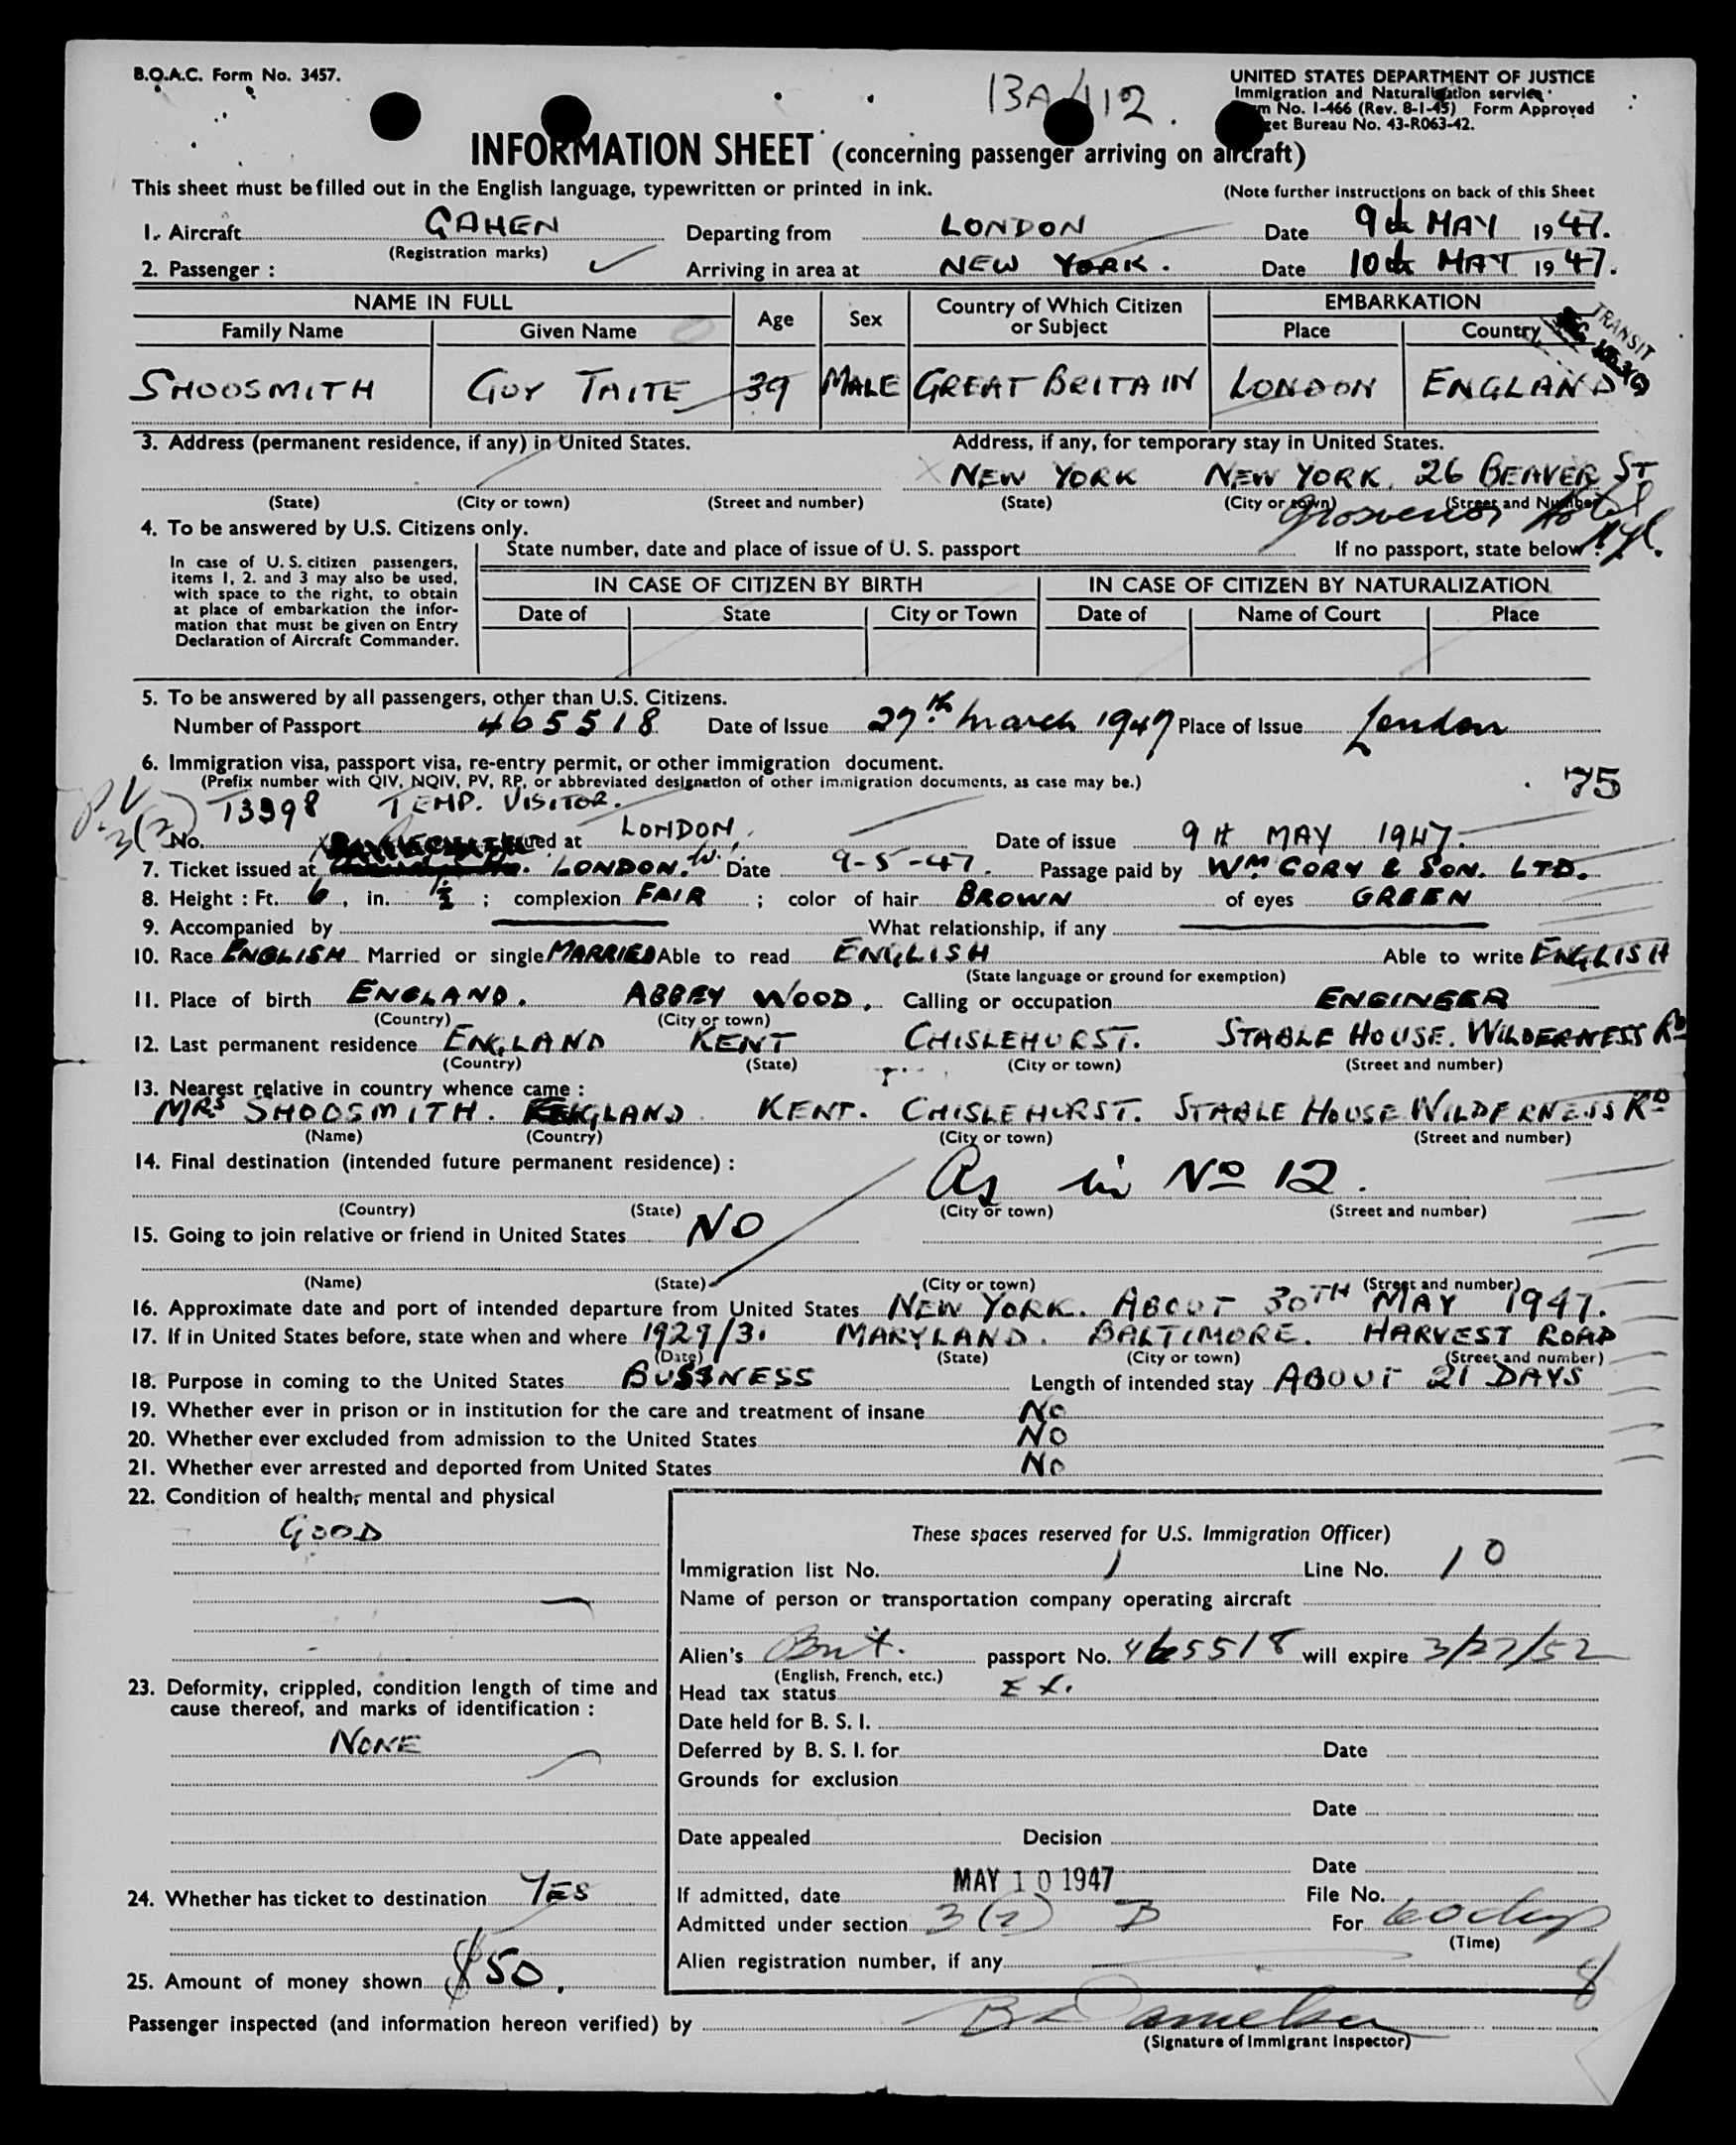 B.O.A.C. Form No. 3457.
13A/112.
UNITED STATES DEPARTMENT OF JUSTICE
Immigration and Naturalization service
No. I-466 (Rev. 8-1-45) Form Approved
Bureau No. 43-R063-42.
INFORMATION SHEET (concerning passenger arriving on aircraft)
This sheet must be filled out in the English language, typewritten or printed in ink.
(Note further instructions on back of this Sheet
1. Aircraft GAHEN Departing from LONDON Date 9th MAY 1947.
(Registration marks)
2. Passenger : Arriving in area at NEW YORK. Date 10th MAY 1947.
NAME IN FULL Age Sex Country of Which Citizen or Subject EMBARKATION
Family Name Given Name Place Country
TRANSIT
SHOOSMITH GUY TAITE 39 MALE GREAT BRITAIN LONDON ENGLAND
3. Address (permanent residence, if any) in United States. Address, if any, for temporary stay in United States.
NEW YORK NEW YORK. 26 BEAVER ST
(State) (City or town) (Street and number) (State) (City or town) (Street and Number)
Grosvenor Hotel
4. To be answered by U.S. Citizens only.
In case of U.S. citizen passengers,
items 1, 2. and 3 may also be used,
with space to the right, to obtain
at place of embarkation the infor-
mation that must be given on Entry
Declaration of Aircraft Commander.
State number, date and place of issue of U. S. passport If no passport, state below
IN CASE OF CITIZEN BY BIRTH IN CASE OF CITIZEN BY NATURALIZATION
Date of State City or Town Date of Name of Court Place
5. To be answered by all passengers, other than U.S. Citizens.
Number of Passport 465518 Date of Issue 27th March 1947 Place of Issue London
6. Immigration visa, passport visa, re-entry permit, or other immigration document.
(Prefix number with QIV, NQIV, PV, RP, or abbreviated designation of other immigration documents, as case may be.)
75
P.V.
3(2)
T3398 TEMP. VISITOR.
No. issued at LONDON, Date of issue 9th MAY 1947.
7. Ticket issued at LONDON. W. Date 9-5-47. Passage paid by WM CORY & SON. LTD.
8. Height : Ft. 6, in. 1½ ; complexion FAIR ; color of hair BROWN of eyes GREEN
9. Accompanied by What relationship, if any
10. Race ENGLISH Married or single MARRIED Able to read ENGLISH Able to write ENGLISH
(State language or ground for exemption)
11. Place of birth ENGLAND. ABBEY WOOD. Calling or occupation ENGINEER
(Country) (City or town)
12. Last permanent residence ENGLAND KENT CHISLEHURST. STABLE HOUSE. WILDERNESS RD
(Country) (State) (City or town) (Street and number)
13. Nearest relative in country whence came :
MRS SHOOSMITH. ENGLAND KENT. CHISLEHURST. STABLE HOUSE WILDERNESS RD
(Name) (Country) (City or town) (Street and number)
14. Final destination (intended future permanent residence) :
As in No 12.
(Country) (State) (City or town) (Street and number)
15. Going to join relative or friend in United States NO
(Name) (State) (City or town) (Street and number)
16. Approximate date and port of intended departure from United States NEW YORK. ABOUT 30TH MAY 1947.
17. If in United States before, state when and where 1929/31 MARYLAND. BALTIMORE. HARVEST ROAD
(Date) (State) (City or town) (Street and number)
18. Purpose in coming to the United States BUSINESS Length of intended stay ABOUT 21 DAYS
19. Whether ever in prison or in institution for the care and treatment of insane NO
20. Whether ever excluded from admission to the United States NO
21. Whether ever arrested and deported from United States NO
22. Condition of health, mental and physical
GOOD
23. Deformity, crippled, condition length of time and
cause thereof, and marks of identification :
NONE
24. Whether has ticket to destination YES
25. Amount of money shown $50.
These spaces reserved for U.S. Immigration Officer)
Immigration list No. 1 Line No. 10
Name of person or transportation company operating aircraft
Alien's Brit. passport No. 465518 will expire 3/27/52
(English, French, etc.)
Head tax status Ex.
Date held for B. S. I.
Deferred by B. S. I. for Date
Grounds for exclusion
Date
Date appealed Decision
Date
If admitted, date MAY 10 1947 File No.
Admitted under section 3(2) B For 60 days
(Time)
Alien registration number, if any
8
Passenger inspected (and information hereon verified) by
(Signature of Immigrant Inspector)